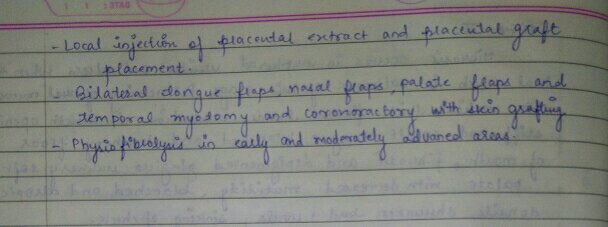 DATE:
- Local injection of placental extract and placental graft
placement.
Bilateral tongue flaps, nasal flaps, palate flaps and
temporal myotomy and coronoractory with skin grafting
- Physio fibiolysis in early and moderately advanced areas.